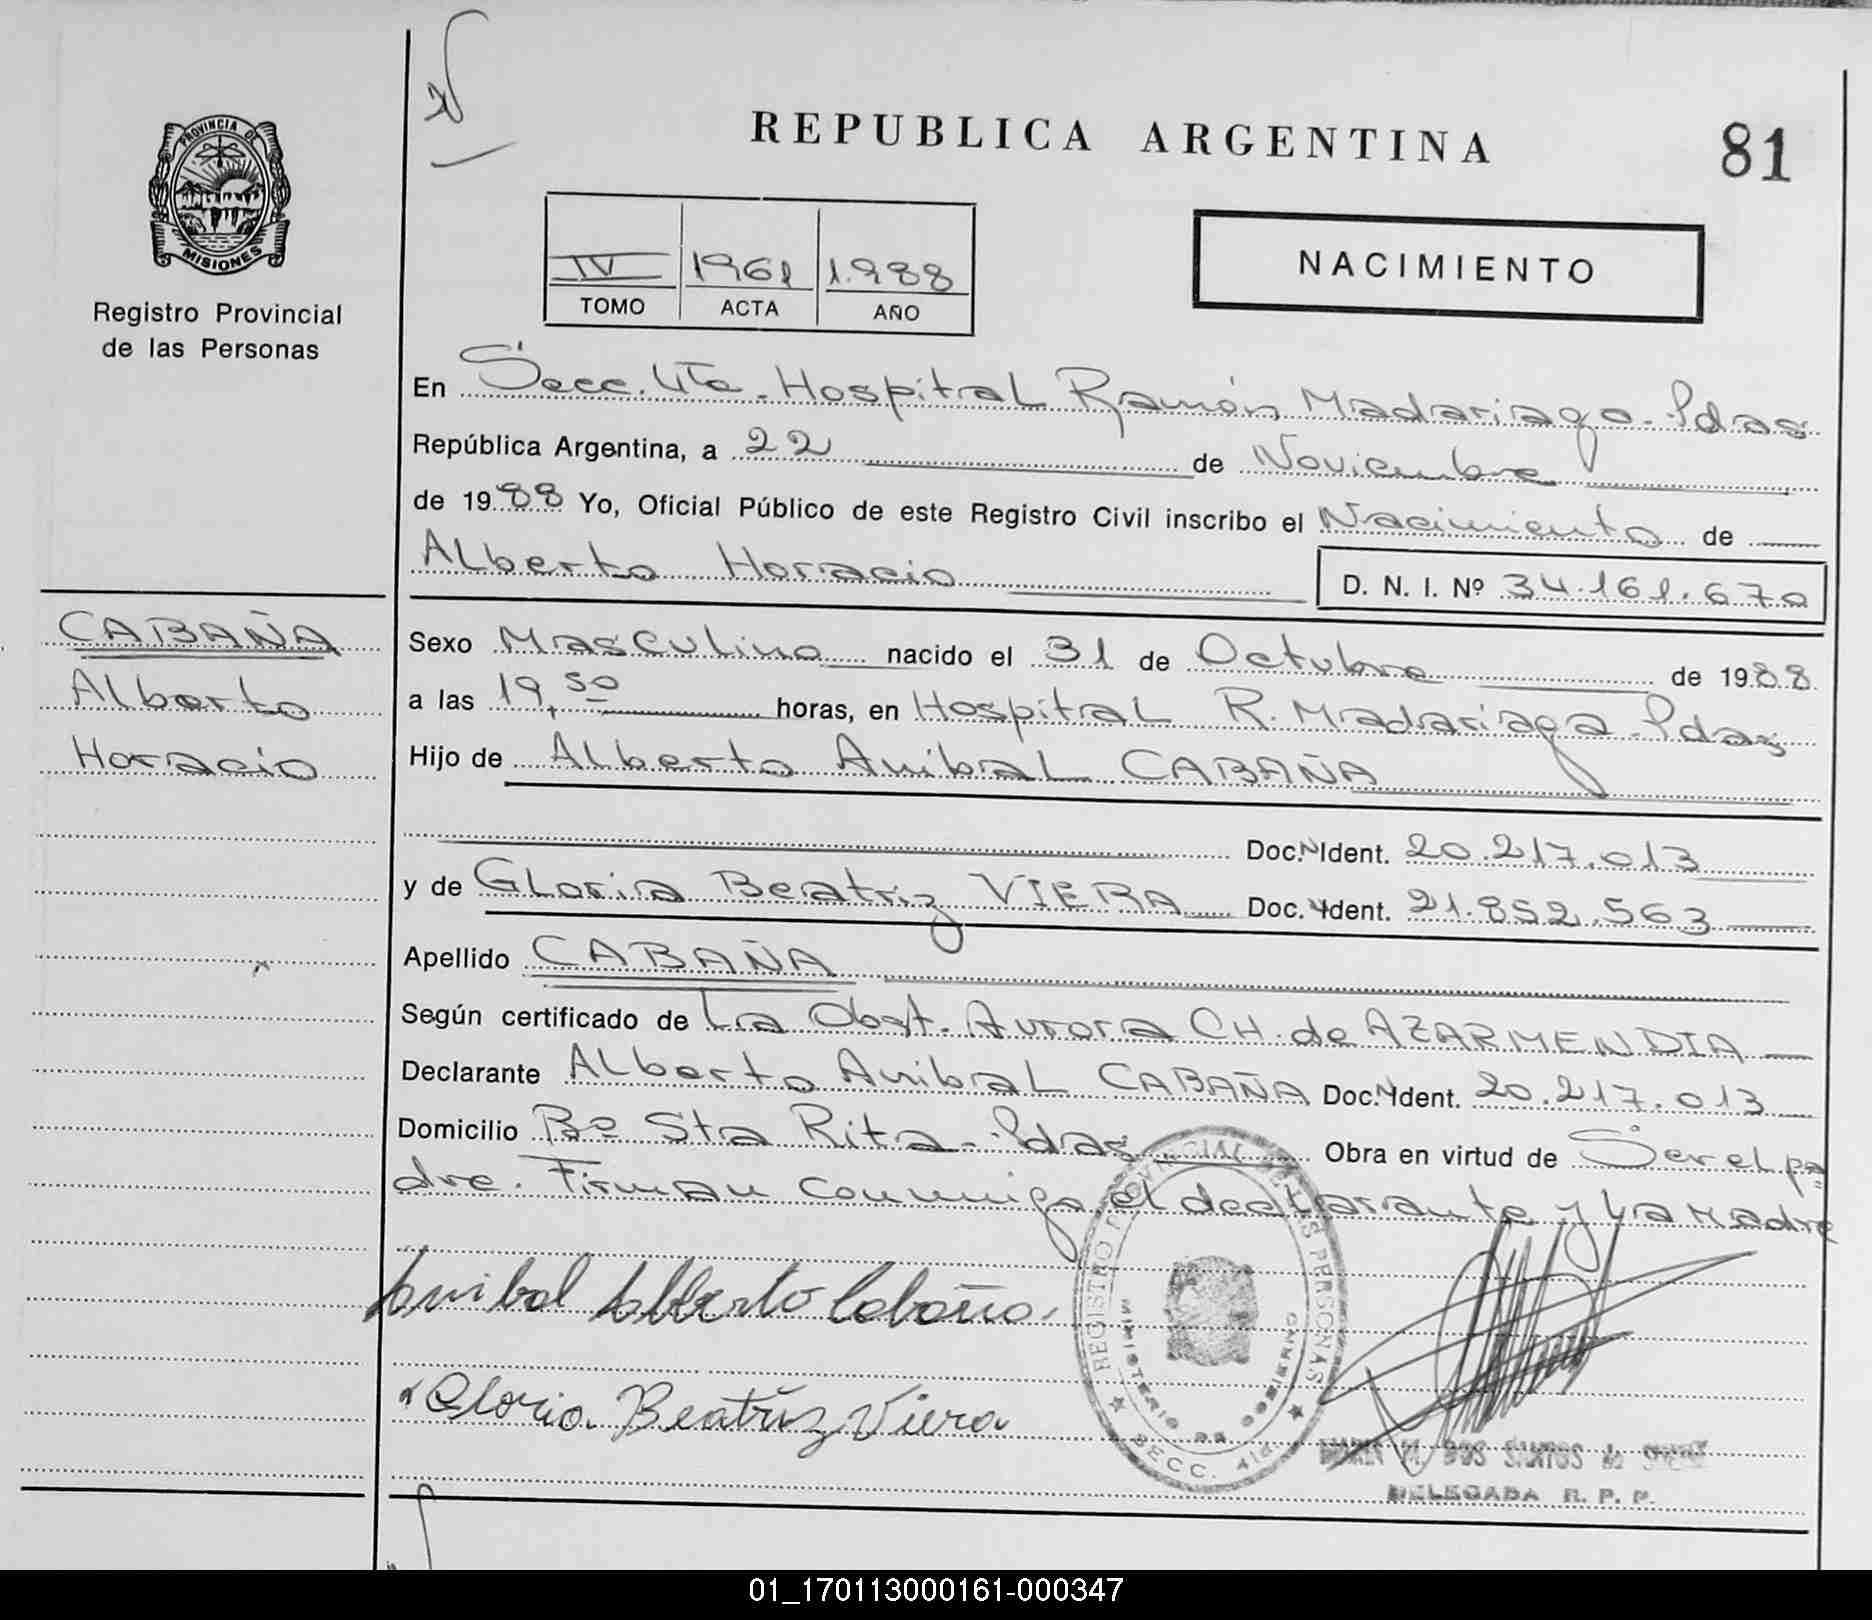 REPUBLICA ARGENTINA
81
PROVINCIA DE
MISIONES
Registro Provincial
de las Personas
IV 1961 1.988
TOMO ACTA AÑO
NACIMIENTO
En Secc. 4ta. Hospital Ramón Madariaga - Pdas
República Argentina, a 22 de Noviembre
de 1988 Yo, Oficial Público de este Registro Civil inscribo el Nacimiento de
Alberto Horacio D. N. I. Nº 34.161.670
CABAÑA
Alberto
Horacio
Sexo Masculino nacido el 31 de Octubre de 1988
a las 19,50 horas, en Hospital R. Madariaga - Pdas
Hijo de Alberto Anibal CABAÑA
Doc. N Ident. 20.217.013
y de Gloria Beatriz VIERA Doc. N Ident. 21.852.563
Apellido CABAÑA
Según certificado de La Obst. Aurora CH. de AZARMENDIA
Declarante Alberto Anibal CABAÑA Doc. N Ident. 20.217.013
Domicilio Bº Sta Rita - Pdas Obra en virtud de Ser el pa
dre. Firman conmigo el declarante y La Madre
Anibal Alberto Cabaña
Gloria Beatriz Viera
REGISTRO PROVINCIAL DE LAS PERSONAS
MINISTERIO DE GOBIERNO
SECC. 4ta
M. DOS SANTOS de
DELEGADA R. P. P.
01_170113000161-000347